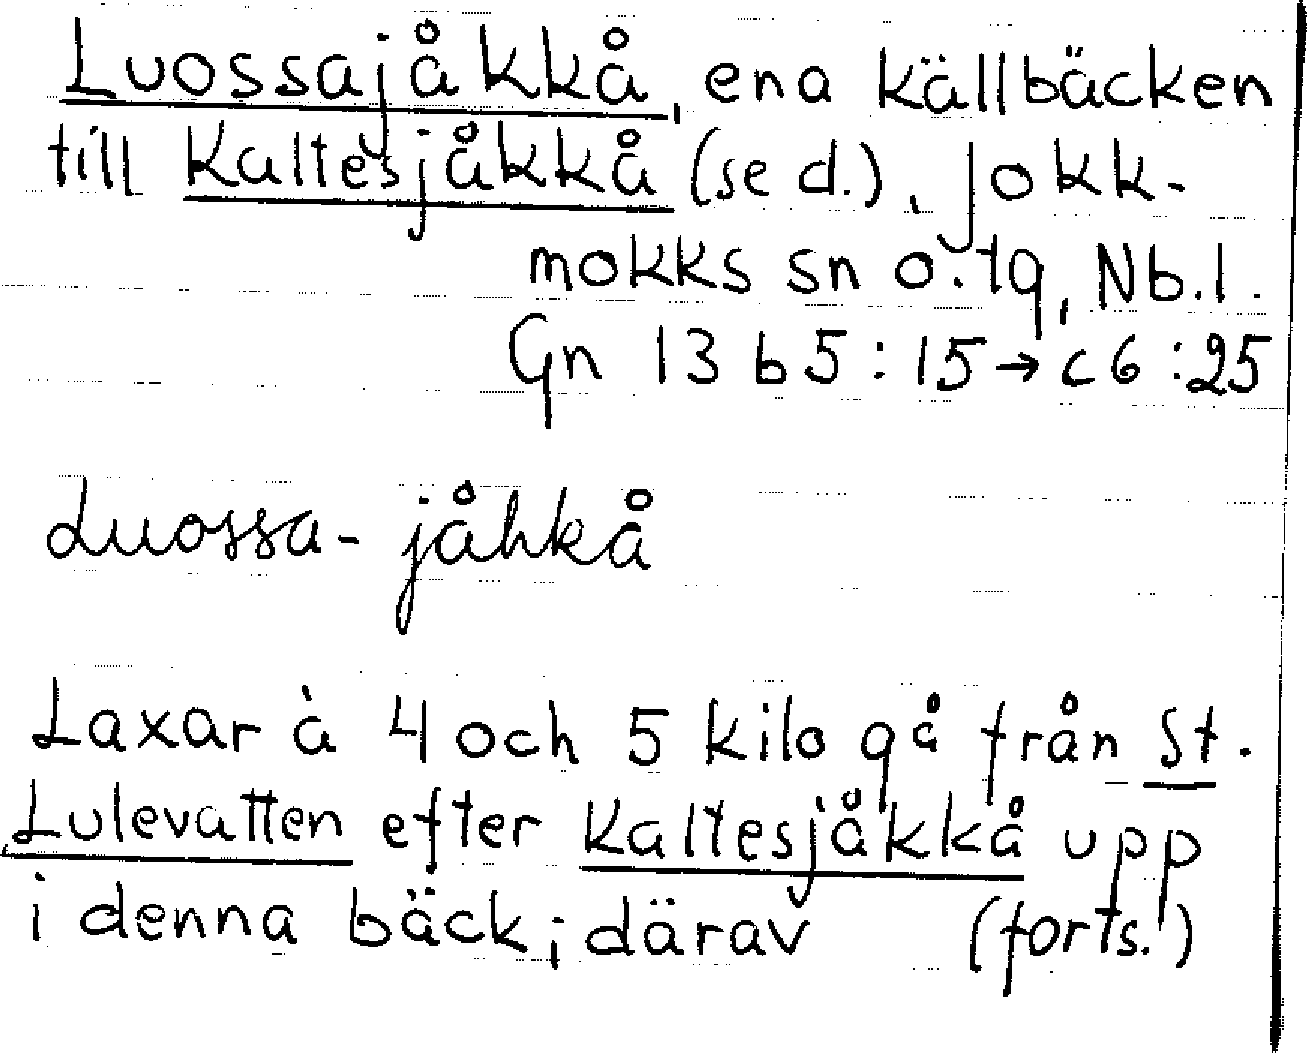 Luossajåkkå, ena källbäcken
till Kaltesjåkkå (se d.), Jokk-
mokks sn o. tg, Nb.l.
Gn 13 b5:15→c6:25
Luossa-jåhkå
Laxar à 4 och 5 kilo gå från St.
Lulevatten efter Kaltesjåkkå upp
i denna bäck; därav (forts.)